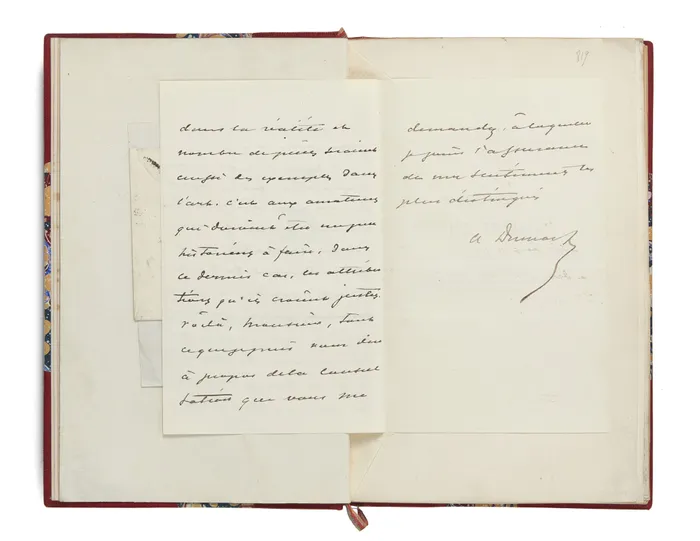 dans la réalité et
nombre de pièces seraient
aussi des exemples dans
l'art. c'est aux amateurs
qui doivent être un peu
historiens à faire, dans
ce dernier cas, les attribu
tions qu'ils croient justes.
Voilà, Monsieur, tout
ce que je puis vous dire
à propos de la consul
tation que vous me
demandez, à laquelle
je joins l'assurance
de mes sentiments les
plus distingués
A
819